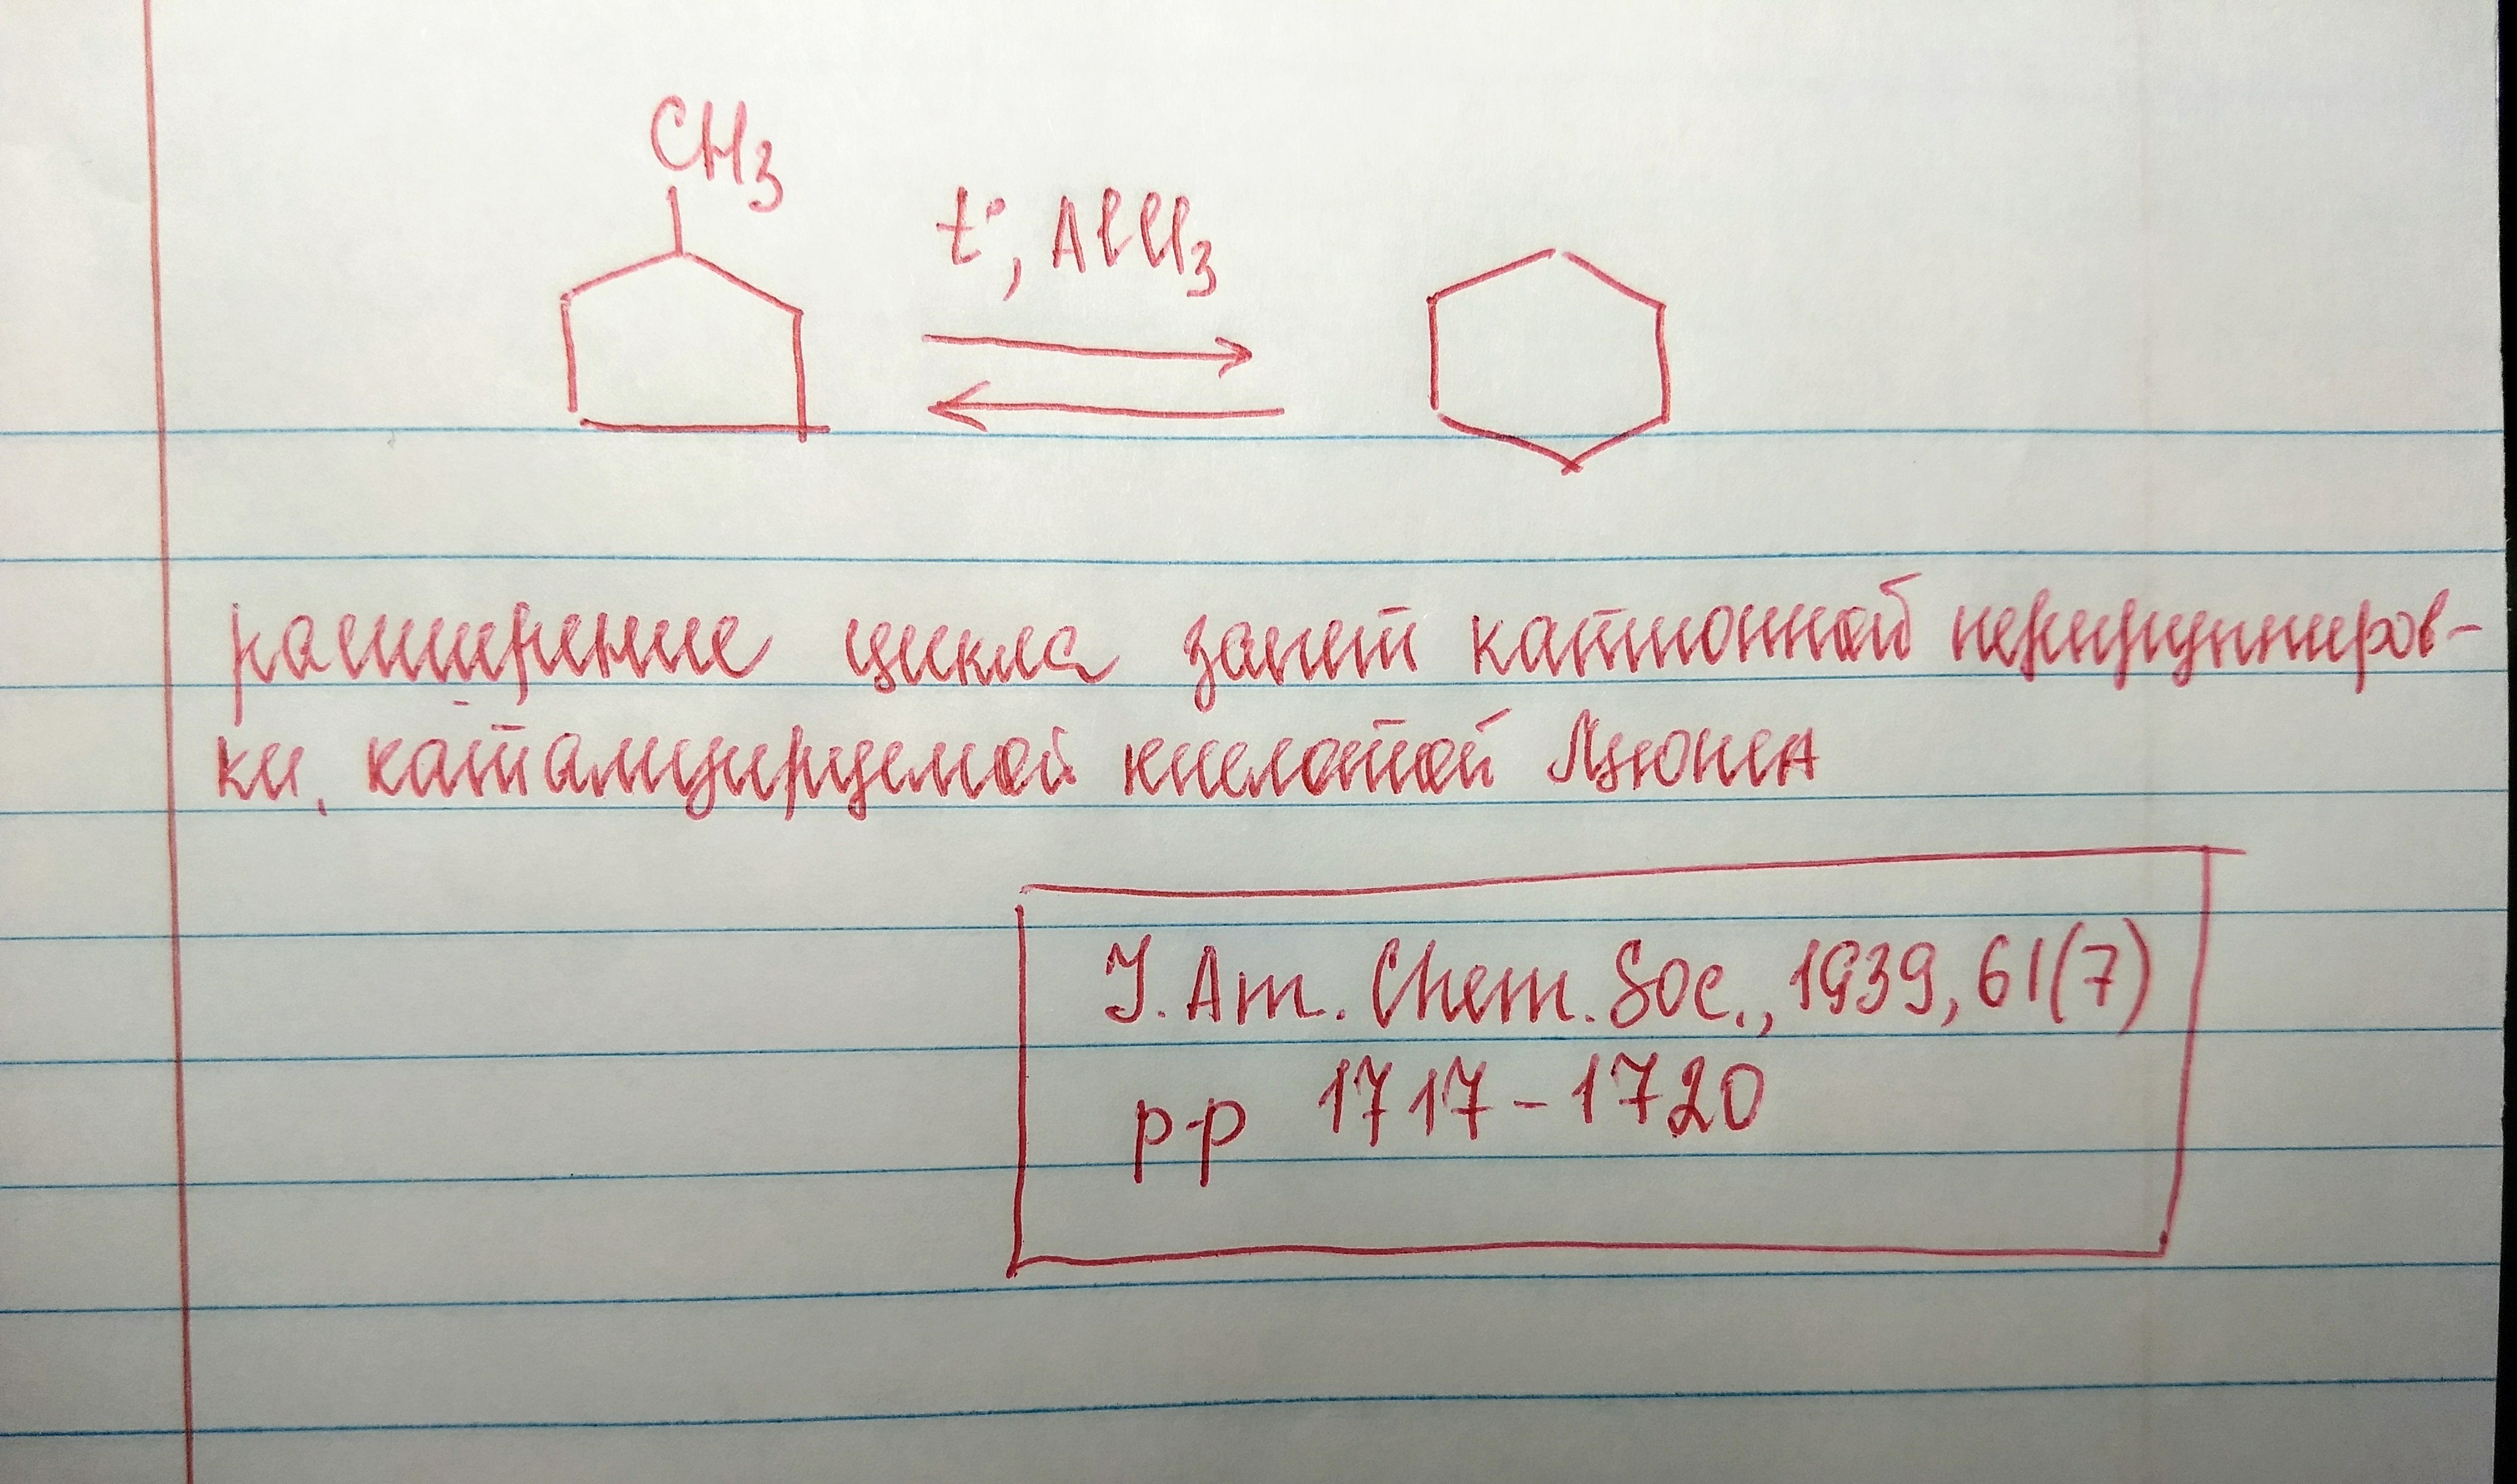 CH₃
t°, AlCl₃
расширение цикла засчет катионной перегруппиров-
ки, катализируемой кислотой Льюиса
J. Am. Chem. Soc., 1939, 61(7)
pp 1717-1720